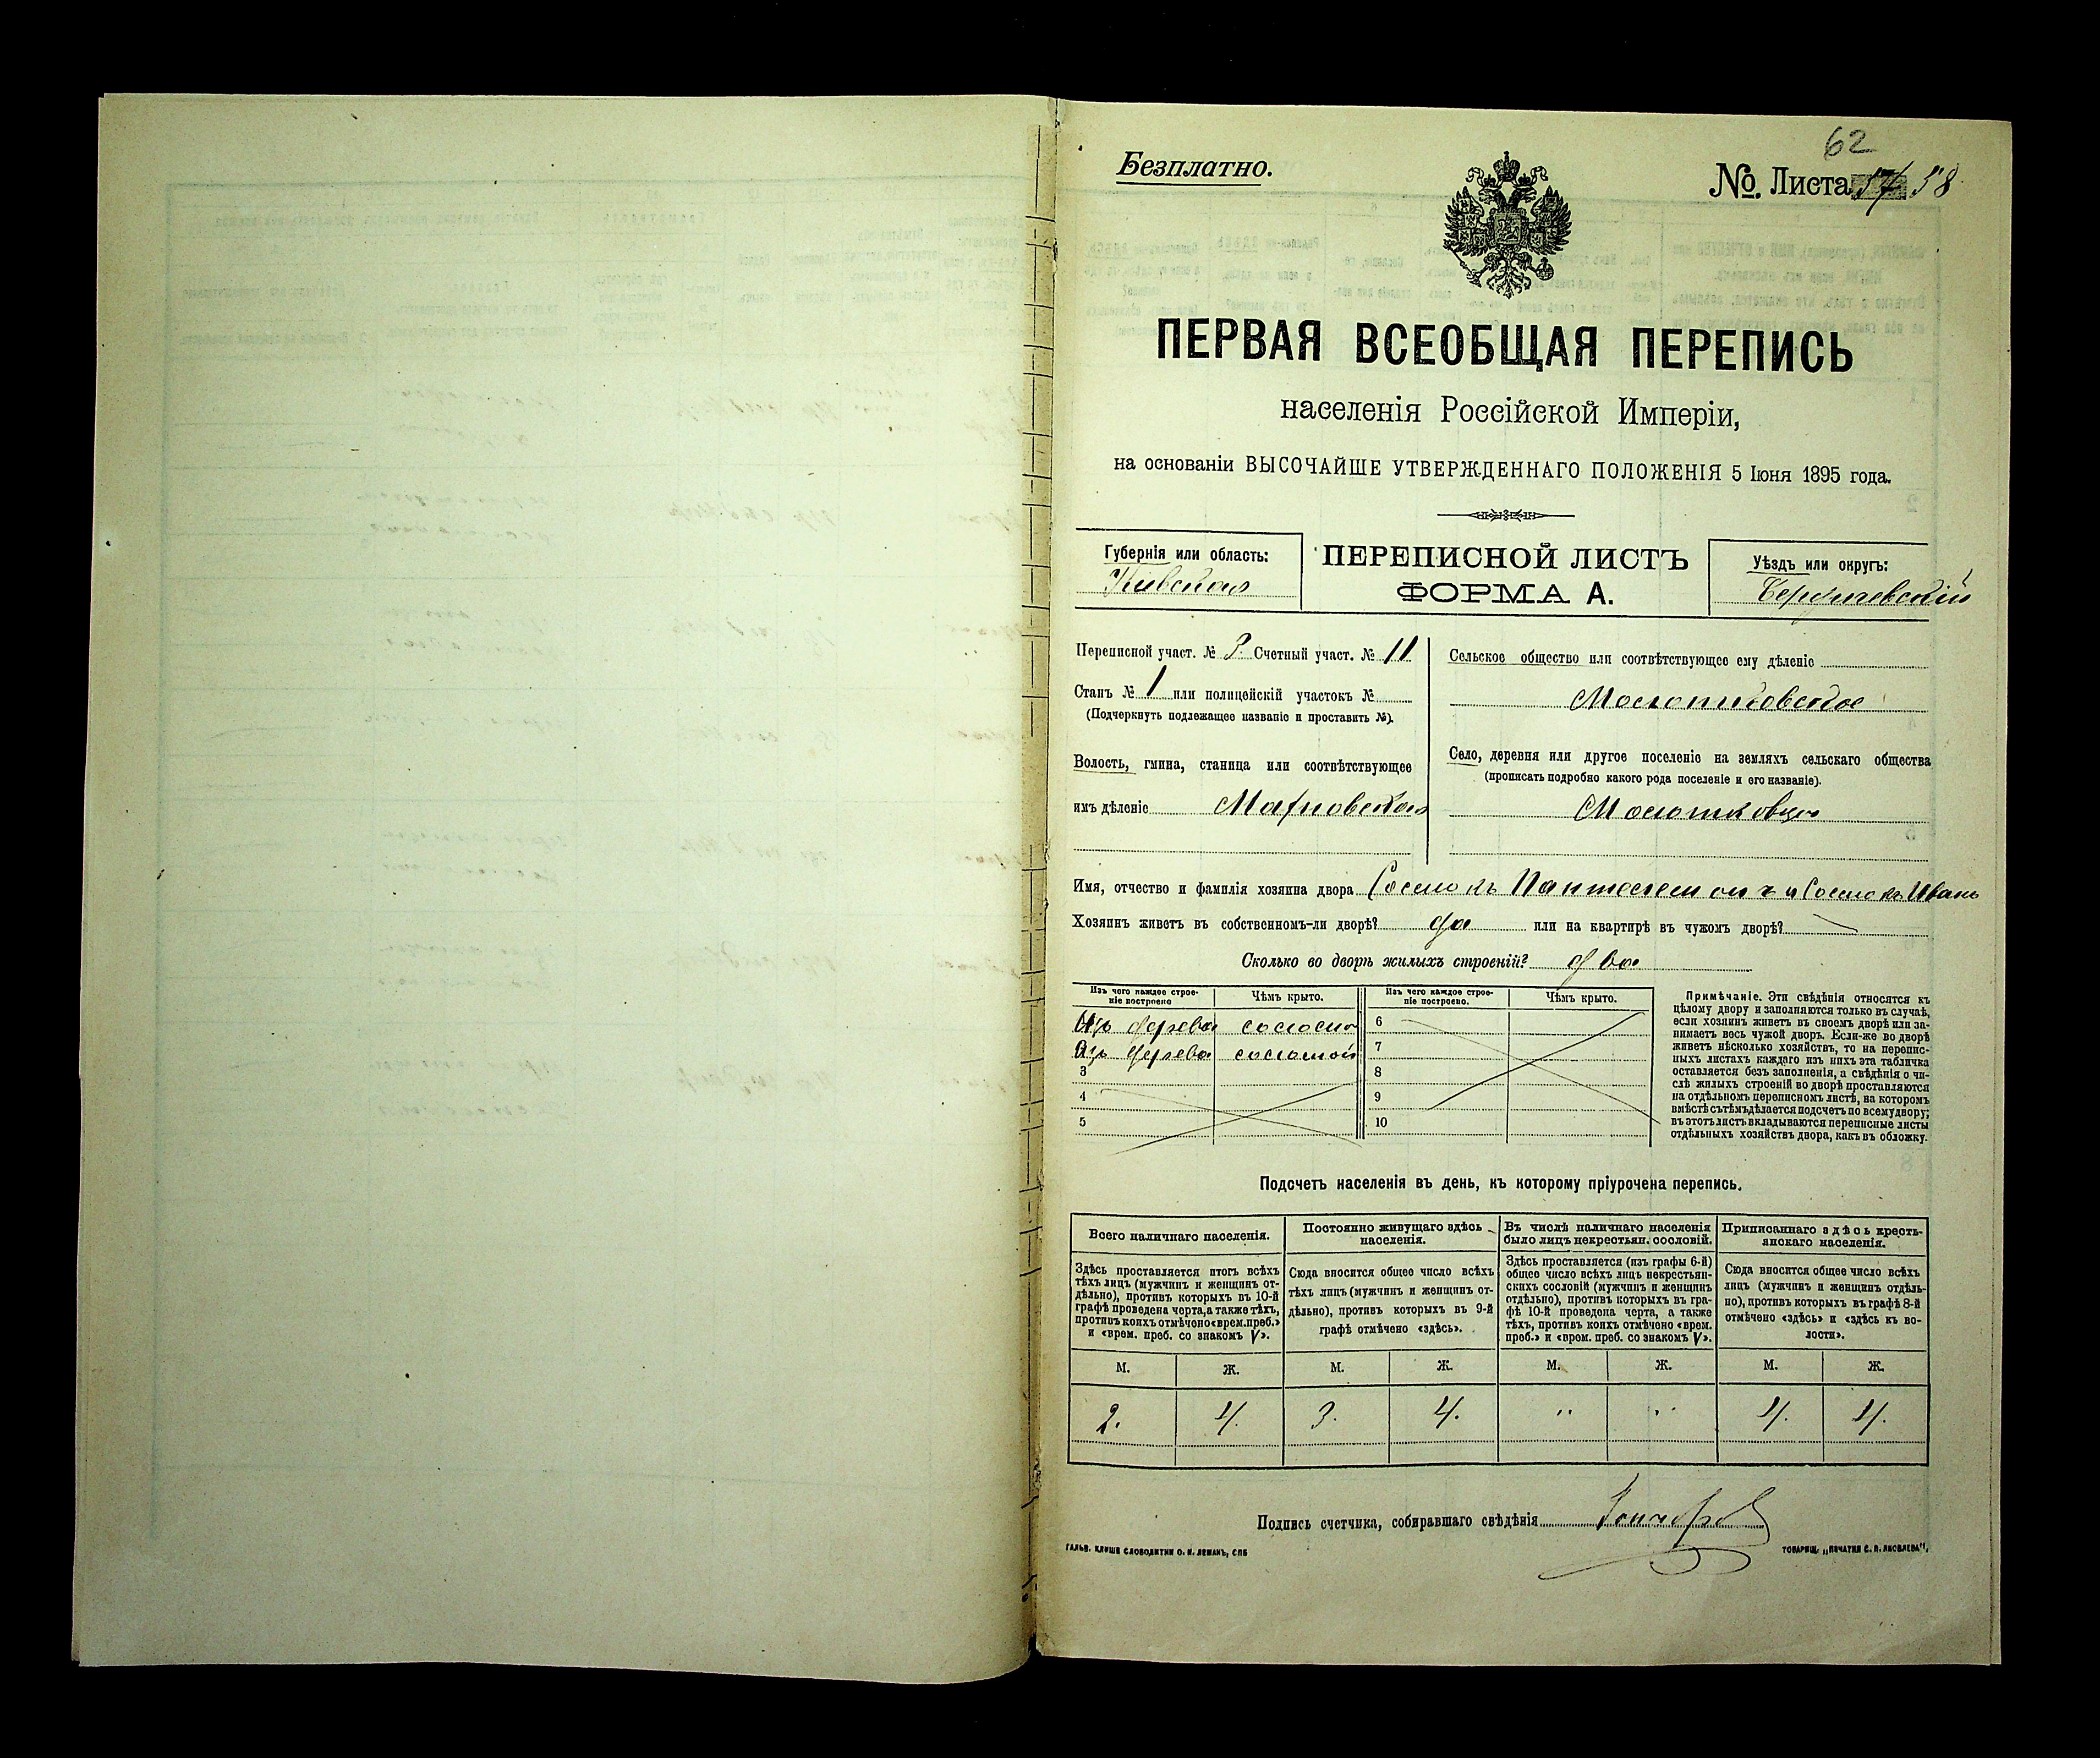 62
Безплатно.
№. Листа 57 58
ПЕРВАЯ ВСЕОБЩАЯ ПЕРЕПИСЬ
населенія Россійской Имперіи,
на основаніи ВЫСОЧАЙШЕ УТВЕРЖДЕННАГО ПОЛОЖЕНІЯ 5 Іюня 1895 года.
Губернія или область:
Кіевская
ПЕРЕПИСНОЙ ЛИСТЪ
ФОРМА А.
Уѣздъ или округъ:
Бердичевскій
Переписной участ. № 3. Счетный участ. № 11
Станъ № 1 или полицейскій участокъ №
(Подчеркнуть подлежащее названіе и проставить №).
Волость, гмина, станица или соотвѣтствующее
имъ дѣленіе Махновская
Сельское общество или соотвѣтствующее ему дѣленіе
Молотковское
Село, деревня или другое поселеніе на земляхъ сельскаго общества
(прописать подробно какого рода поселеніе и его названіе).
Имя, отчество и фамилія хозяина двора Пантелемонъ и Иванъ
Хозяинъ живетъ въ собственномъ-ли дворѣ? да или на квартирѣ въ чужомъ дворѣ?
Сколько во дворѣ жилыхъ строеній? два
Изъ чего каждое строе-
ніе построено
Чѣмъ крыто.
Изъ чего каждое строе-
ніе построено.
Чѣмъ крыто.
Изъ дерева соломою 6
Изъ дерева соломой 7
3 8
4 9
5 10
Примѣчаніе. Эти свѣдѣнія относятся къ
цѣлому двору и заполняются только въ случаѣ,
если хозяинъ живетъ въ своемъ дворѣ или за-
нимаетъ весь чужой дворъ. Если-же во дворѣ
живетъ нѣсколько хозяйствъ, то на перепис-
ныхъ листахъ каждаго изъ нихъ эта табличка
оставляется безъ заполненія, а свѣдѣнія о чи-
слѣ жилыхъ строеній во дворѣ проставляются
на отдѣльномъ переписномъ листѣ, на которомъ
вмѣстѣ съ тѣмъ дѣлается подсчетъ по всему двору;
въ этотъ листъ вкладываются переписные листы
отдѣльныхъ хозяйствъ двора, какъ въ обложку.
Подсчетъ населенія въ день, къ которому пріурочена перепись.
Всего наличнаго населенія.
Здѣсь проставляется итогъ всѣхъ
тѣхъ лицъ (мужчинъ и женщинъ от-
дѣльно), противъ которыхъ въ 10-й
графѣ проведена черта, а также тѣхъ,
противъ коихъ отмѣчено «врем. преб.»
и «врем. преб. со знакомъ V».
Постоянно живущаго здѣсь
населенія.
Сюда вносится общее число всѣхъ
тѣхъ лицъ (мужчинъ и женщинъ от-
дѣльно), противъ которыхъ въ 9-й
графѣ отмѣчено «здѣсь».
Въ числѣ наличнаго населенія
было лицъ некрестьян. сословій.
Здѣсь проставляется (изъ графы 6-й)
общее число всѣхъ лицъ некрестьян-
скихъ сословій (мужчинъ и женщинъ
отдѣльно), противъ которыхъ въ гра-
фѣ 10-й проведена черта, а также
тѣхъ, противъ коихъ отмѣчено «врем.
преб.» и «врем. преб. со знакомъ V».
Приписаннаго здѣсь кресть-
янскаго населенія.
Сюда вносится общее число всѣхъ
лицъ (мужчинъ и женщинъ отдѣль-
но), противъ которыхъ въ графѣ 8-й
отмѣчено «здѣсь» и «здѣсь къ во-
лости».
М. Ж. М. Ж. М. Ж. М. Ж.
2. 4. 3. 4. " " 4. 4.
Подпись счетчика, собиравшаго свѣдѣнія
ГАЛЬВ. КЛИШЕ СЛОВОЛИТНИ О. И. ЛЕМАНЪ, СПБ
ТОВАРИЩ. „ПЕЧАТНЯ С. П. ЯКОВЛЕВА".